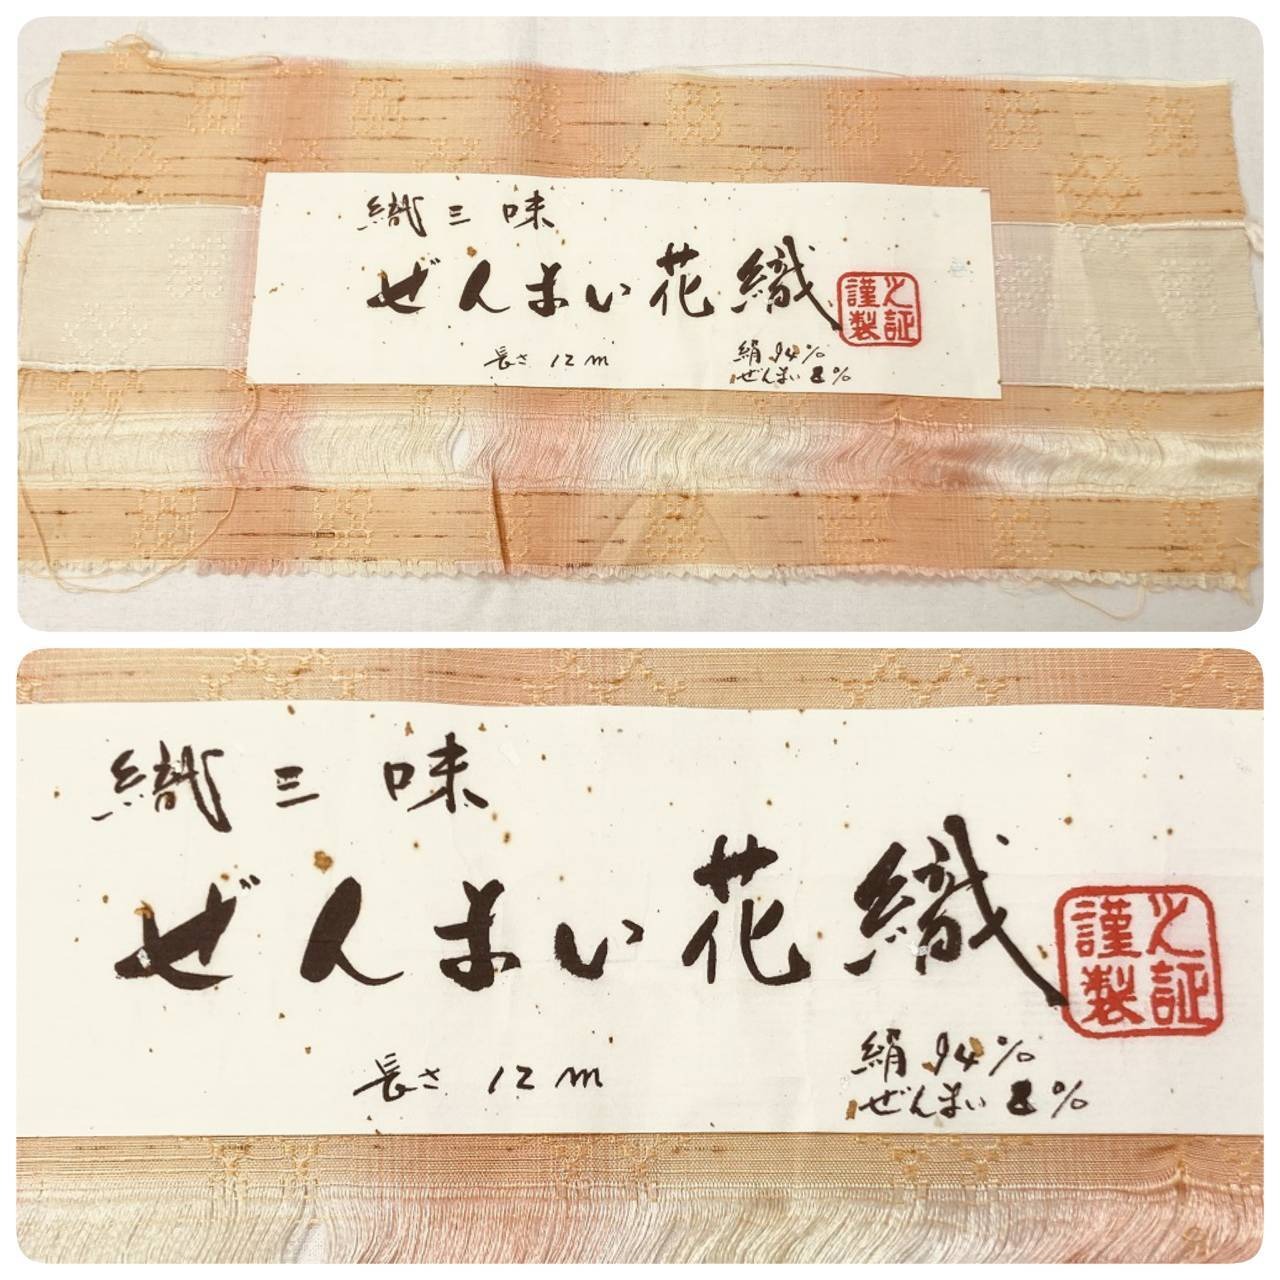 織三味
ぜんまい花織
謹製之証
長さ 12m
絹 94%
ぜんまい %
織三味
ぜんまい花織
謹製之証
長さ 12m
絹 94%
ぜんまい %